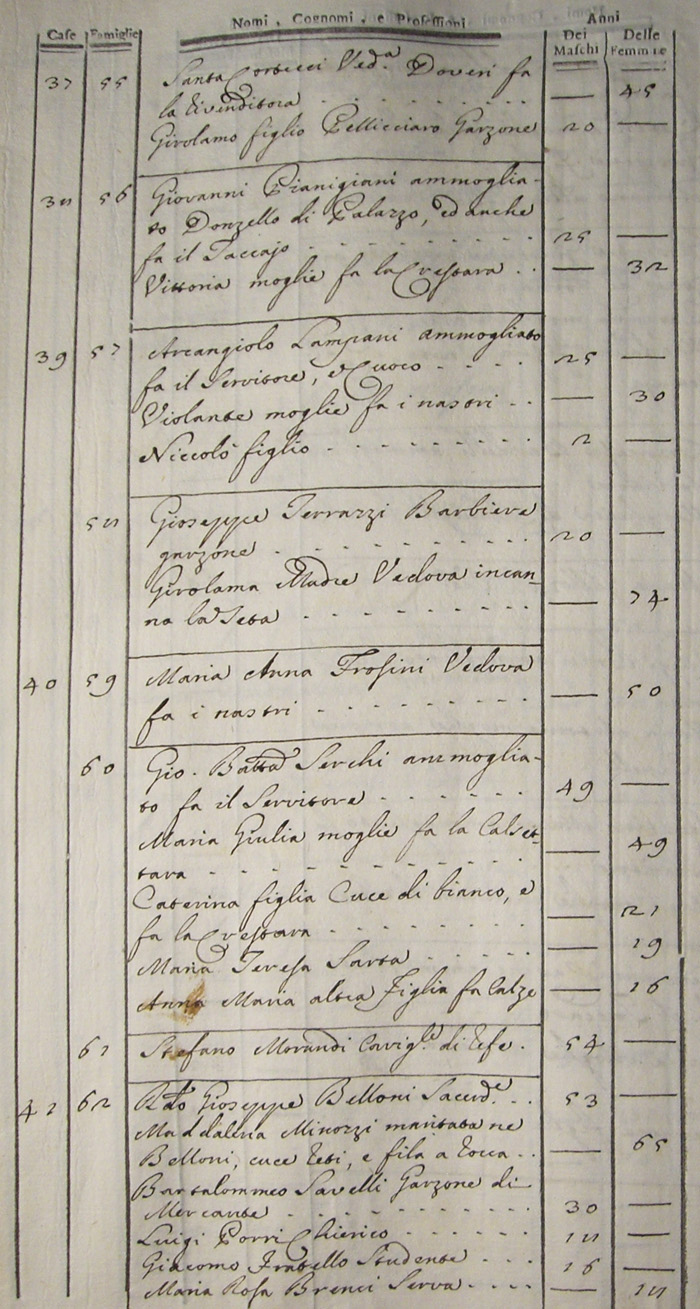 Case Famiglie Nomi, Cognomi, e Professioni Anni
Dei Maschi Delle Femmine
37 55 Santa Cortecci Ved.a Doveri fa
la Rivenditora - - - - - — 45
Girolamo figlio Pellicciaro Garzone 20 —
38 56 Giovanni Pianigiani ammoglia-
to Donzello di Palazzo, ed anche
fa il Taccajo - - - - - 25 —
Vittoria moglie fa la Crestara - - — 32
39 57 Arcangiolo Lampani ammogliato
fa il Servitore, e Cuoco - - - - 25 —
Violante moglie fa i nastri - - — 30
Niccolò figlio - - - - - 2 —
58 Gioseppe Terrazzi Barbiere
garzone - - - - - 20 —
Girolama Madre Vedova incan-
na la Seta - - - - - — 74
40 59 Maria Anna Frosini Vedova
fa i nastri - - - - - — 50
60 Gio. Batta Serchi ammoglia-
to fa il Servitore - - - - - 49 —
Maria Giulia moglie fa la Calset-
tara - - - - - — 49
Caterina figlia Cuce di bianco, e
fa la Crestara - - - - - — 21
Maria Teresa Sarta - - - - - — 19
Anna Maria altra Figlia fa Calze — 16
61 Stefano Morandi di 54 —
41 62 R.do Gioseppe Belloni Sacerd.e - - 53 —
Maddalena Minozzi maritata ne
Belloni, cuce e fila a Rocca - - — 65
Bartalommeo Savelli Garzone di
Mercante - - - - - 30 —
Luigi Porri Chierico - - - - - 18 —
Giacomo Fratello Studente - - - 16 —
Maria Rosa Brenci Serva - - - - — 18